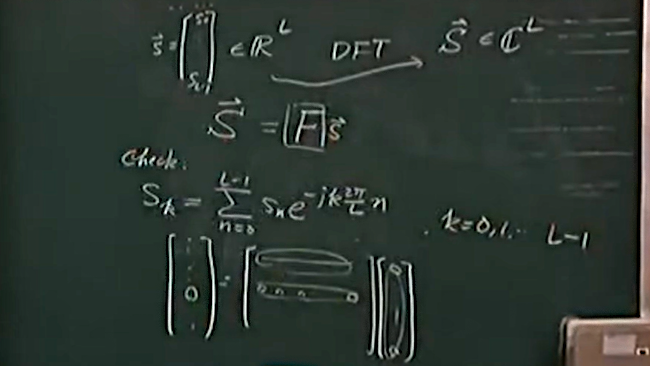 s⃗ = [s₀ ⋮ s_{L-1}] ∈ ℝ^L DFT S⃗ ∈ ℂ^L
S⃗ = [F] s⃗
Check:
S_k = Σ_{n=0}^{L-1} s_n e^{-jk (2π/L) n} . k=0,1.. L-1